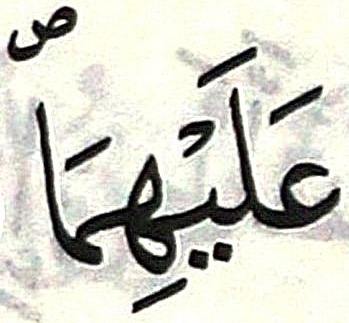 عَلَيْهِمَا ۖ ص